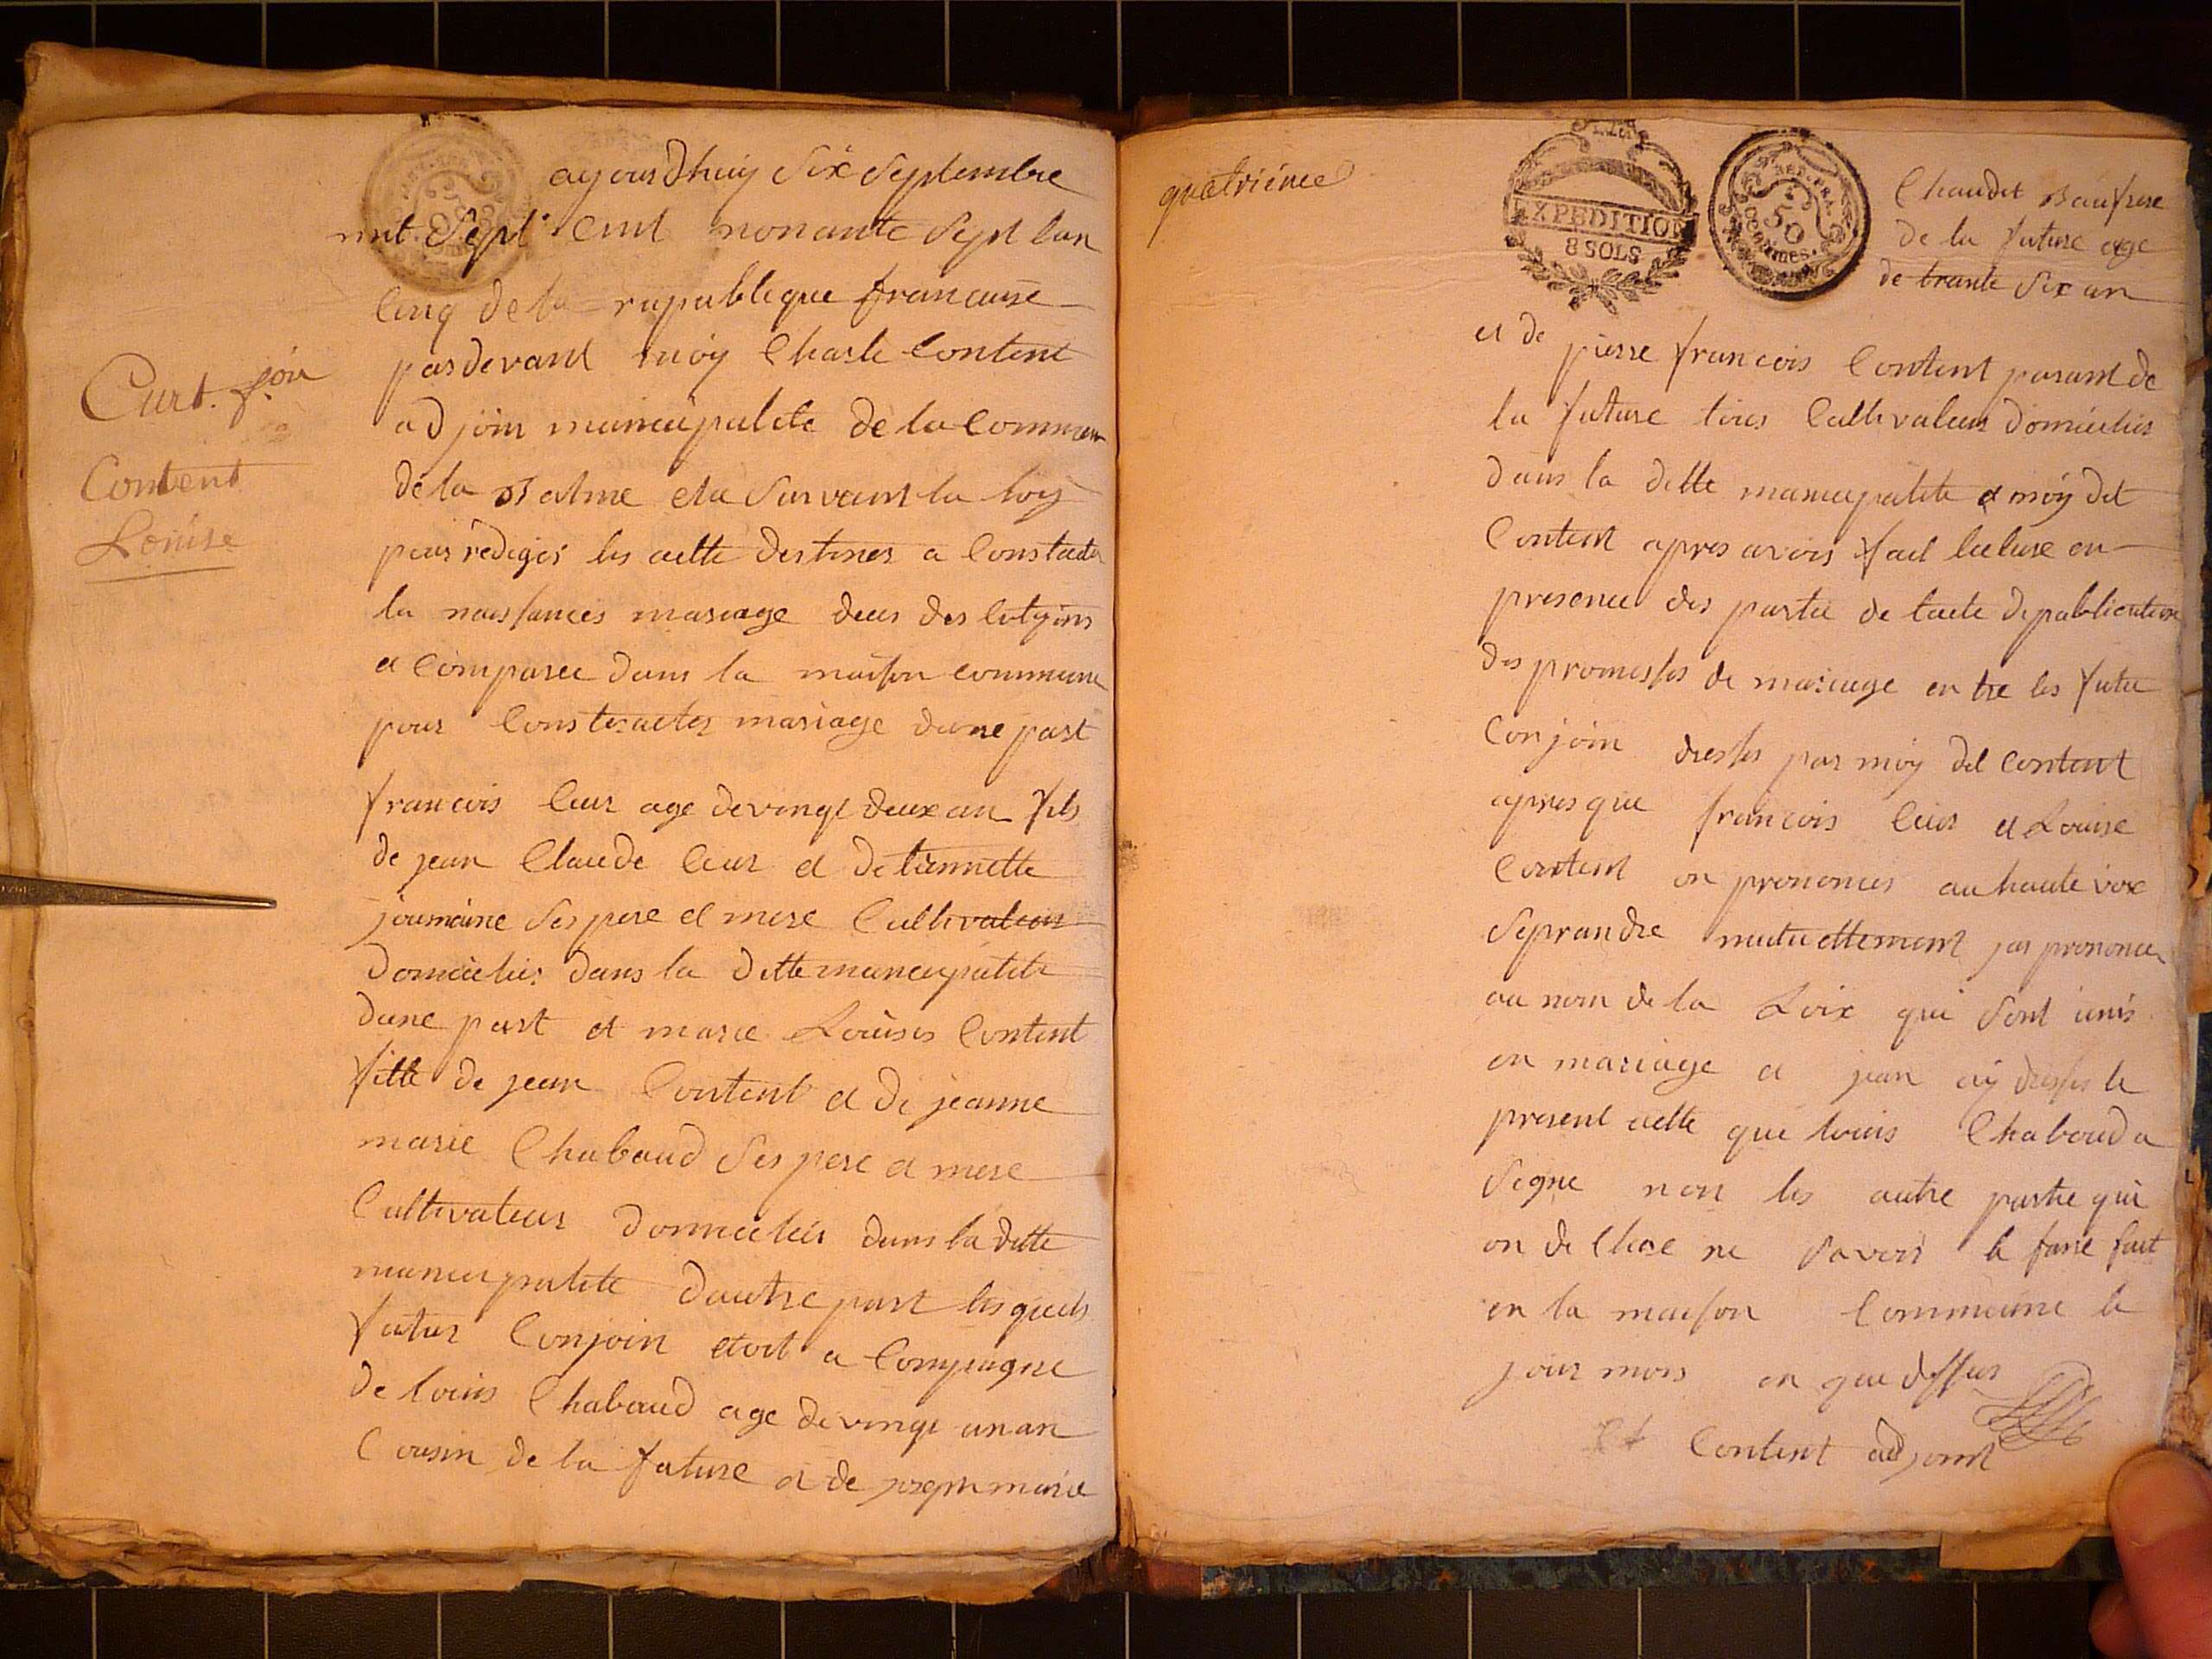 Curt. f.çois
Contend
Louise
aujourdhuy Six Septembre
mil Sept Cent nonante Sept lan
Cinq de la republique francaise
pardevand moy Charle Content
adjoin municipalite de la Commun
de la Balme elu Survant la loy
pour rediger les actte destines a Constater
la naissances mariage deces des Citoyins
a Comparu dans la maison commune
pour Constractes mariage dune part
francois Curt age de vingt deux an fils
de jean Claude Curt et detiennette
ses pere et mere Cultivateur
Domicilies dans la ditte municipalite
dune part et marie Louises Content
fille de jean Content et de jeanne
marie Chaboud Ses pere et mere
Cultivateur domicilies dans la ditte
municipalite dautre part lesquels
futur Conjoin etoit a Compagne
de louis Chaboud age de vingt un an
Cousin de la future et de joseph marie
quatriéme
EXPEDITION
8 SOLS
REP. FRA.
50
centimes.
Chaudet Baufrere
de la future age
de trante Six an
et de pierre francois Content parant de
la future tous Cultivateur domicilies
dans la ditte municipalite et moy dit
Content apres avoir fait lecture en
presence des partie de lacte de publication
des promesses de mariage entre les futu
Conjoin dresses par moy dit Content
apres que francois Curt et Louise
Content on prononces au haute voix
Seprandre mutuellement jai prononcer
au nom de la Loix qui Sont unis
en mariage et jean ay dresses le
present actte que louis Chaboud a
Signe non les autre partie qui
on de Clare ne Savoir le faire fait
en la maison Commune le
jour mois an que dessus
Content adjoint